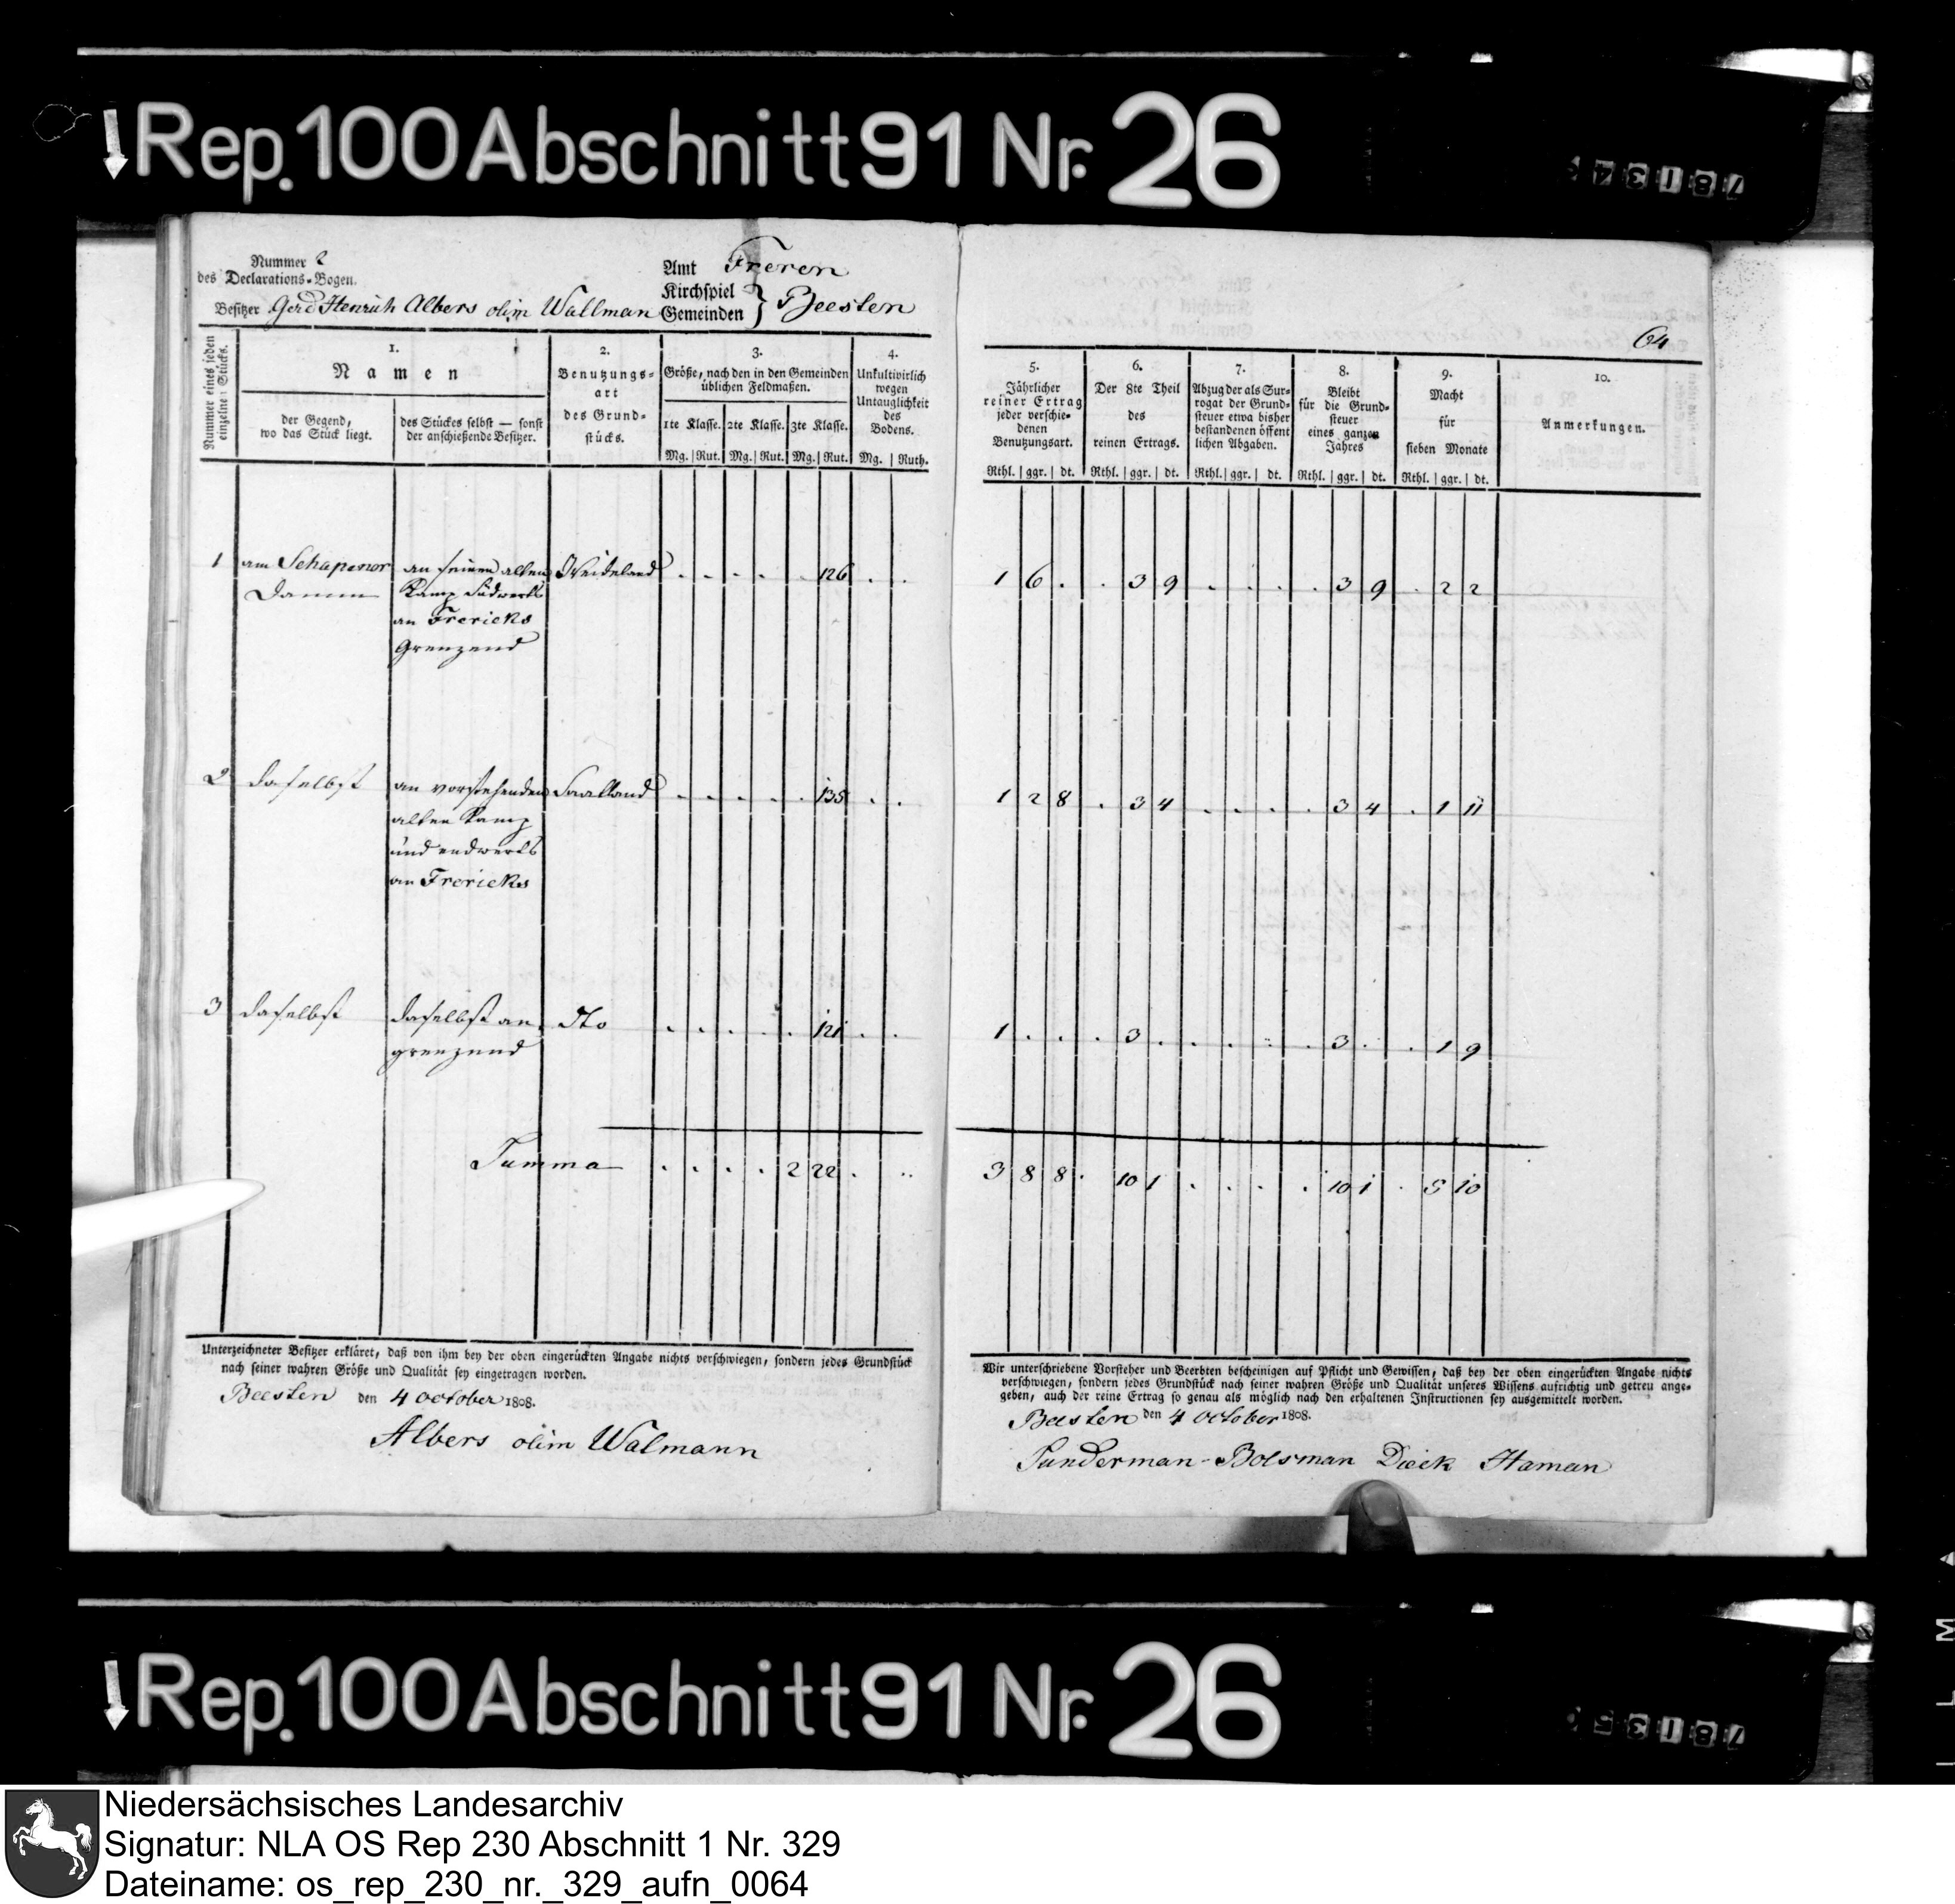 Rep. 100 Abschnitt 91 Nr. 26
78134
Nummer 2
des Declarations-Bogen.
Besitzer Gerd Henrich Albers olim Wallman
Amt Freren
Kirchspiel
Gemeinden } Beesten
64
Nummer eines jeden einzelnen Stücks.
1.
Namen
der Gegend, wo das Stück liegt.
des Stückes selbst — sonst der anschießende Besitzer.
2.
Benutzungs-art des Grund-stücks.
3.
Größe, nach den in den Gemeinden üblichen Feldmaßen.
1te Klasse. 2te Klasse. 3te Klasse.
Mg. Rut. Mg. Rut. Mg. Rut.
4.
Unkultivirlich wegen Untauglichkeit des Bodens.
Mg. Ruth.
5.
Jährlicher reiner Ertrag jeder verschie-denen Benutzungsart.
Rthl. ggr. dt.
6.
Der 8te Theil des reinen Ertrags.
Rthl. ggr. dt.
7.
Abzug der als Sur-rogat der Grund-steuer etwa bisher bestandenen öffent lichen Abgaben.
Rthl. ggr. dt.
8.
Bleibt für die Grund-steuer eines ganzen Jahres
Rthl. ggr. dt.
9.
Macht für sieben Monate
Rthl. ggr. dt.
10.
Anmerkungen.
1 am Schapener Damm
an seinem alten Kamp Südwerts an Frericks Grenzend
Weideland . . . . . 126 . . 1 6 . . 3 9 . . . . 3 9 . 2 2
2 daselbst
an vorstehenden alten Kamp und endwerts an Frericks
Saatland . . . . . 135 . . 1 2 8 . 3 4 . . . . 3 4 . 1 11
3 daselbst
daselbst an grenzend
dto . . . . . 121 . . 1 . . . 3 . . . . . 3 . . 1 9
Summa . . . . 2 22 . . 3 8 8 . 10 1 . . . . 10 1 . 5 10
Unterzeichneter Besitzer erkläret, daß von ihm bey der oben eingerückten Angabe nichts verschwiegen, sondern jedes Grundstück
nach seiner wahren Größe und Qualität sey eingetragen worden.
Beesten den 4 October 1808.
Albers olim Walmann
Wir unterschriebene Vorsteher und Beerbten bescheinigen auf Pflicht und Gewissen, daß bey der oben eingerückten Angabe nichts
verschwiegen, sondern jedes Grundstück nach seiner wahren Größe und Qualität unseres Wissens aufrichtig und getreu ange-
geben, auch der reine Ertrag so genau als möglich nach den erhaltenen Instructionen sey ausgemittelt worden.
Beesten den 4 October 1808.
Sunderman - Bolsman Dieck Haman
Rep. 100 Abschnitt 91 Nr. 26
78135
Niedersächsisches Landesarchiv
Signatur: NLA OS Rep 230 Abschnitt 1 Nr. 329
Dateiname: os_rep_230_nr._329_aufn_0064